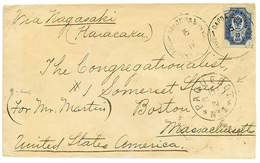 Via Nagasaki
(Нагасаки)
The Congregationalist
#1 Somerset Street
(For Mr. Martin) Boston
Massachusetts
United States America.